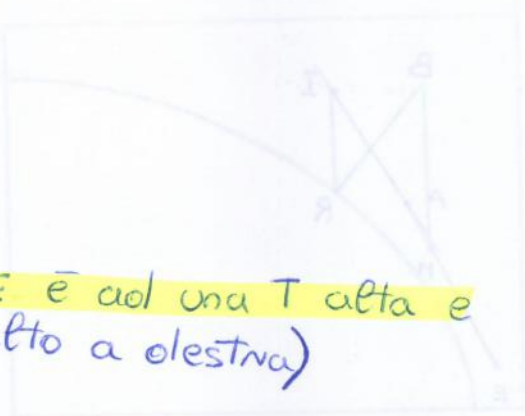 è ad una T alta e
lto a destra)
I B
R A